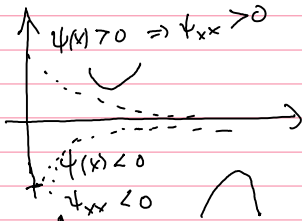 ψ(x) > 0 ⇒ ψxx > 0
ψ(x) < 0
ψxx < 0